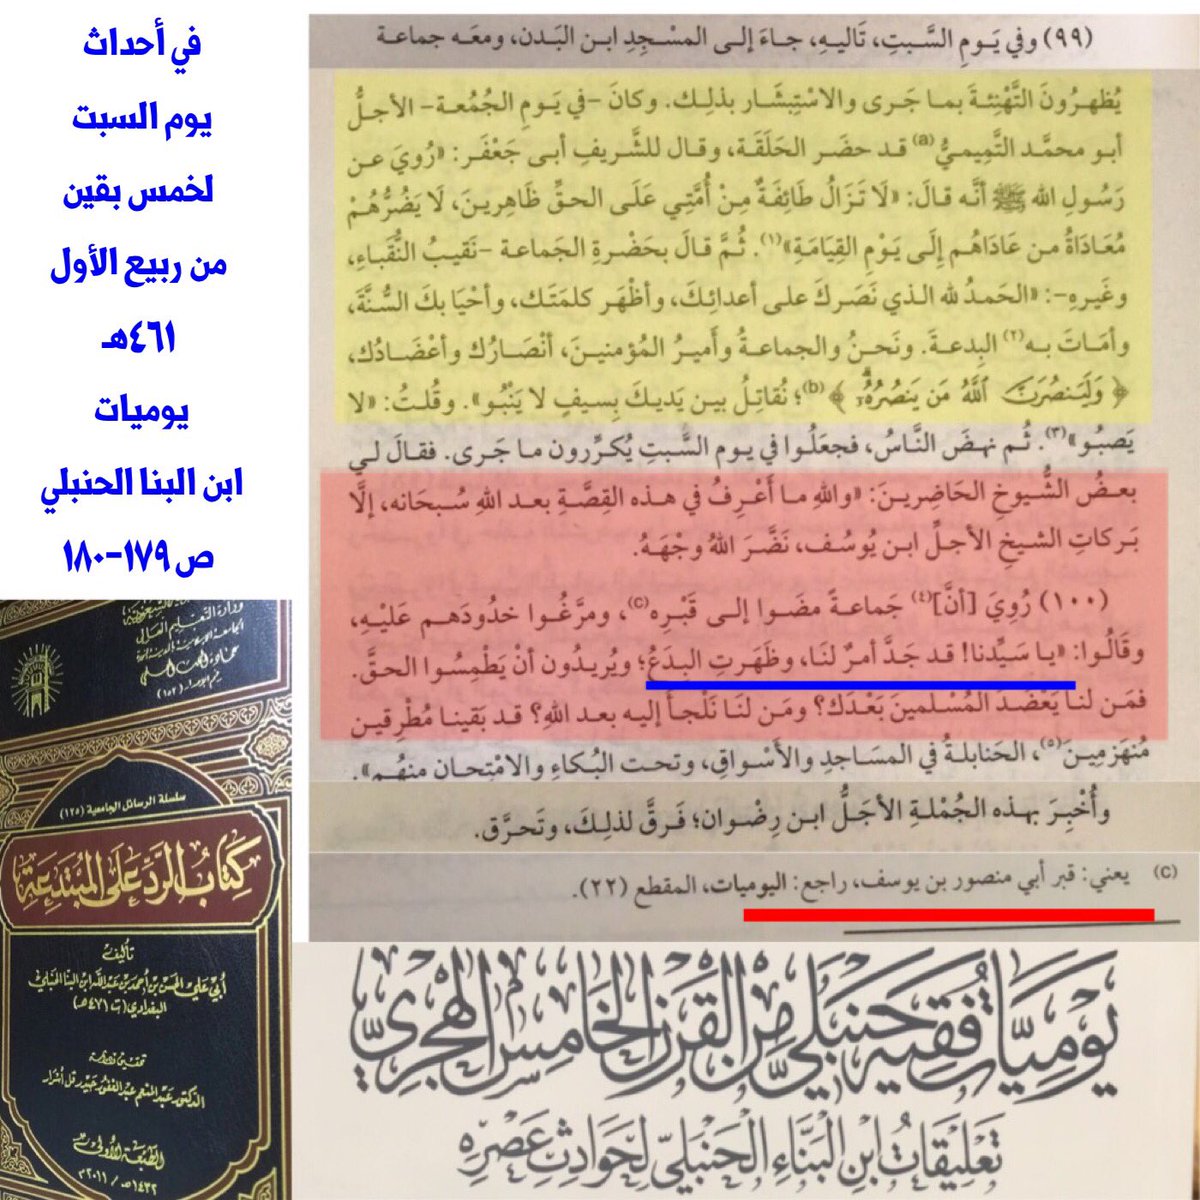 في أحداث
يوم السبت
لخمس بقين
من ربيع الأول
٤٦١هـ
يوميات
ابن البنا الحنبلي
ص ١٧٩-١٨٠
(٩٩) وفي يَومِ السَّبتِ، تَاليهِ، جاءَ إلى المسْجِدِ ابنِ البَدن، ومعَه جماعة
يُظهرُونَ التَّهْنِئةَ بما جَرى والاسْتِبْشَار بذلِك. وكانَ -في يَومِ الجُمُعة- الأجلُّ
أبو محمَّد التَّمِيميُّ(a) قد حضَر الحَلَقَة، وقال للشَّريفِ أبى جَعْفَر: «رُويَ عن
رَسُولِ الله ﷺ أنَّه قالَ: «لَا تَزَالُ طَائِفَةٌ مِنْ أُمَّتِي عَلَى الحقِّ ظَاهِرينَ، لَا يَضُرُّهُمْ
مُعَادَاةُ من عَادَاهُم إِلَى يَوْمِ القِيَامَةِ»(١). ثُمَّ قالَ بحَضْرةِ الجَماعة -نَقيبُ النُّقَباءِ،
وغَيرِهِ-: «الحَمدُ لله الذي نَصَركَ على أعدائِكَ، وأظْهَر كلمَتَك، وأحْيَا بكَ السُّنَّةَ،
وأمَاتَ به(٢) البِدعةَ. ونَحنُ والجماعةُ وأَميرُ المُؤمنينَ، أنْصَارُك وأعْضَادُك،
﴿ وَلَيَنصُرَنَّ ٱللَّهُ مَن يَنصُرُهُ ﴾(b)؛ نُقاتِلُ بين يَديكَ بِسيفٍ لا يَنْبُو». وقُلتُ: «لا
يَصبُو»(٣). ثُم نهضَ النَّاسُ، فجعَلُوا في يوم السَّبتِ يُكرِّرون ما جَرى. فقالَ لي
بعضُ الشُّيوخِ الحَاضِرينَ: «واللهِ ما أَعْرِفُ في هذه القِصَّةِ بعد اللهِ سُبحَانه، إلَّا
بَركاتِ الشيخِ الأجلِّ ابن يُوسُف، نَضَّرَ اللهُ وجْهَهُ.
(١٠٠) رُوِيَ [أنَّ](٤) جَماعةً مضَوا إلى قَبْرِه(c)، ومرَّغُوا خدُودَهم عَليْهِ،
وقَالُوا: «يا سَيِّدنا! قد جَدَّ أمرٌ لنَا، وظَهَرتِ البِدَعُ؛ ويُريدُون أنْ يَطْمِسُوا الحقَّ.
فمَن لنا يَعْضدَ المُسْلمينَ بَعْدَك؟ ومَن لنَا نَلْجأ إليه بعد اللهِ؟ قد بَقينا مُطْرِقين
مُنهَزمِينَ(٥)، الحَنابلةُ في المسَاجدِ والأَسْواقِ، وتحت البُكاءِ والامْتِحان منهُم».
وأُخْبِرَ بهذه الجُمْلةِ الأجَلُّ ابن رِضْوان؛ فَرقَّ لذلِكَ، وتَحرَّق.
(c) يعني: قبر أبي منصور بن يوسف، راجع: اليوميات، المقطع (٢٢).
وزارة التعليم العالي
الجامعة الإسلامية بالمدينة المنورة
عمادة البحث العلمي
رقم الإصدار (١٥٢)
سلسلة الرسائل الجامعية (١٢٥)
كِتَابُ الرَّدِّ عَلَى المُبْتَدِعَة
تأليف
أبي علي الحسن بن أحمد بن عبد الله ابن البنا الحنبلي
البغدادي (ت ٤٧١هـ)
الطبعة الأولى
١٤٣٢هـ / ٢٠١١م
يَوميَّات فَقِيهٍ حَنبَليٍّ مِنَ القَرنِ الخَامِسِ الهِجريِّ
تَعليقَاتُ ابنِ البَنَّاءِ الحَنبَليِّ لحَوادِثِ عَصْرِه